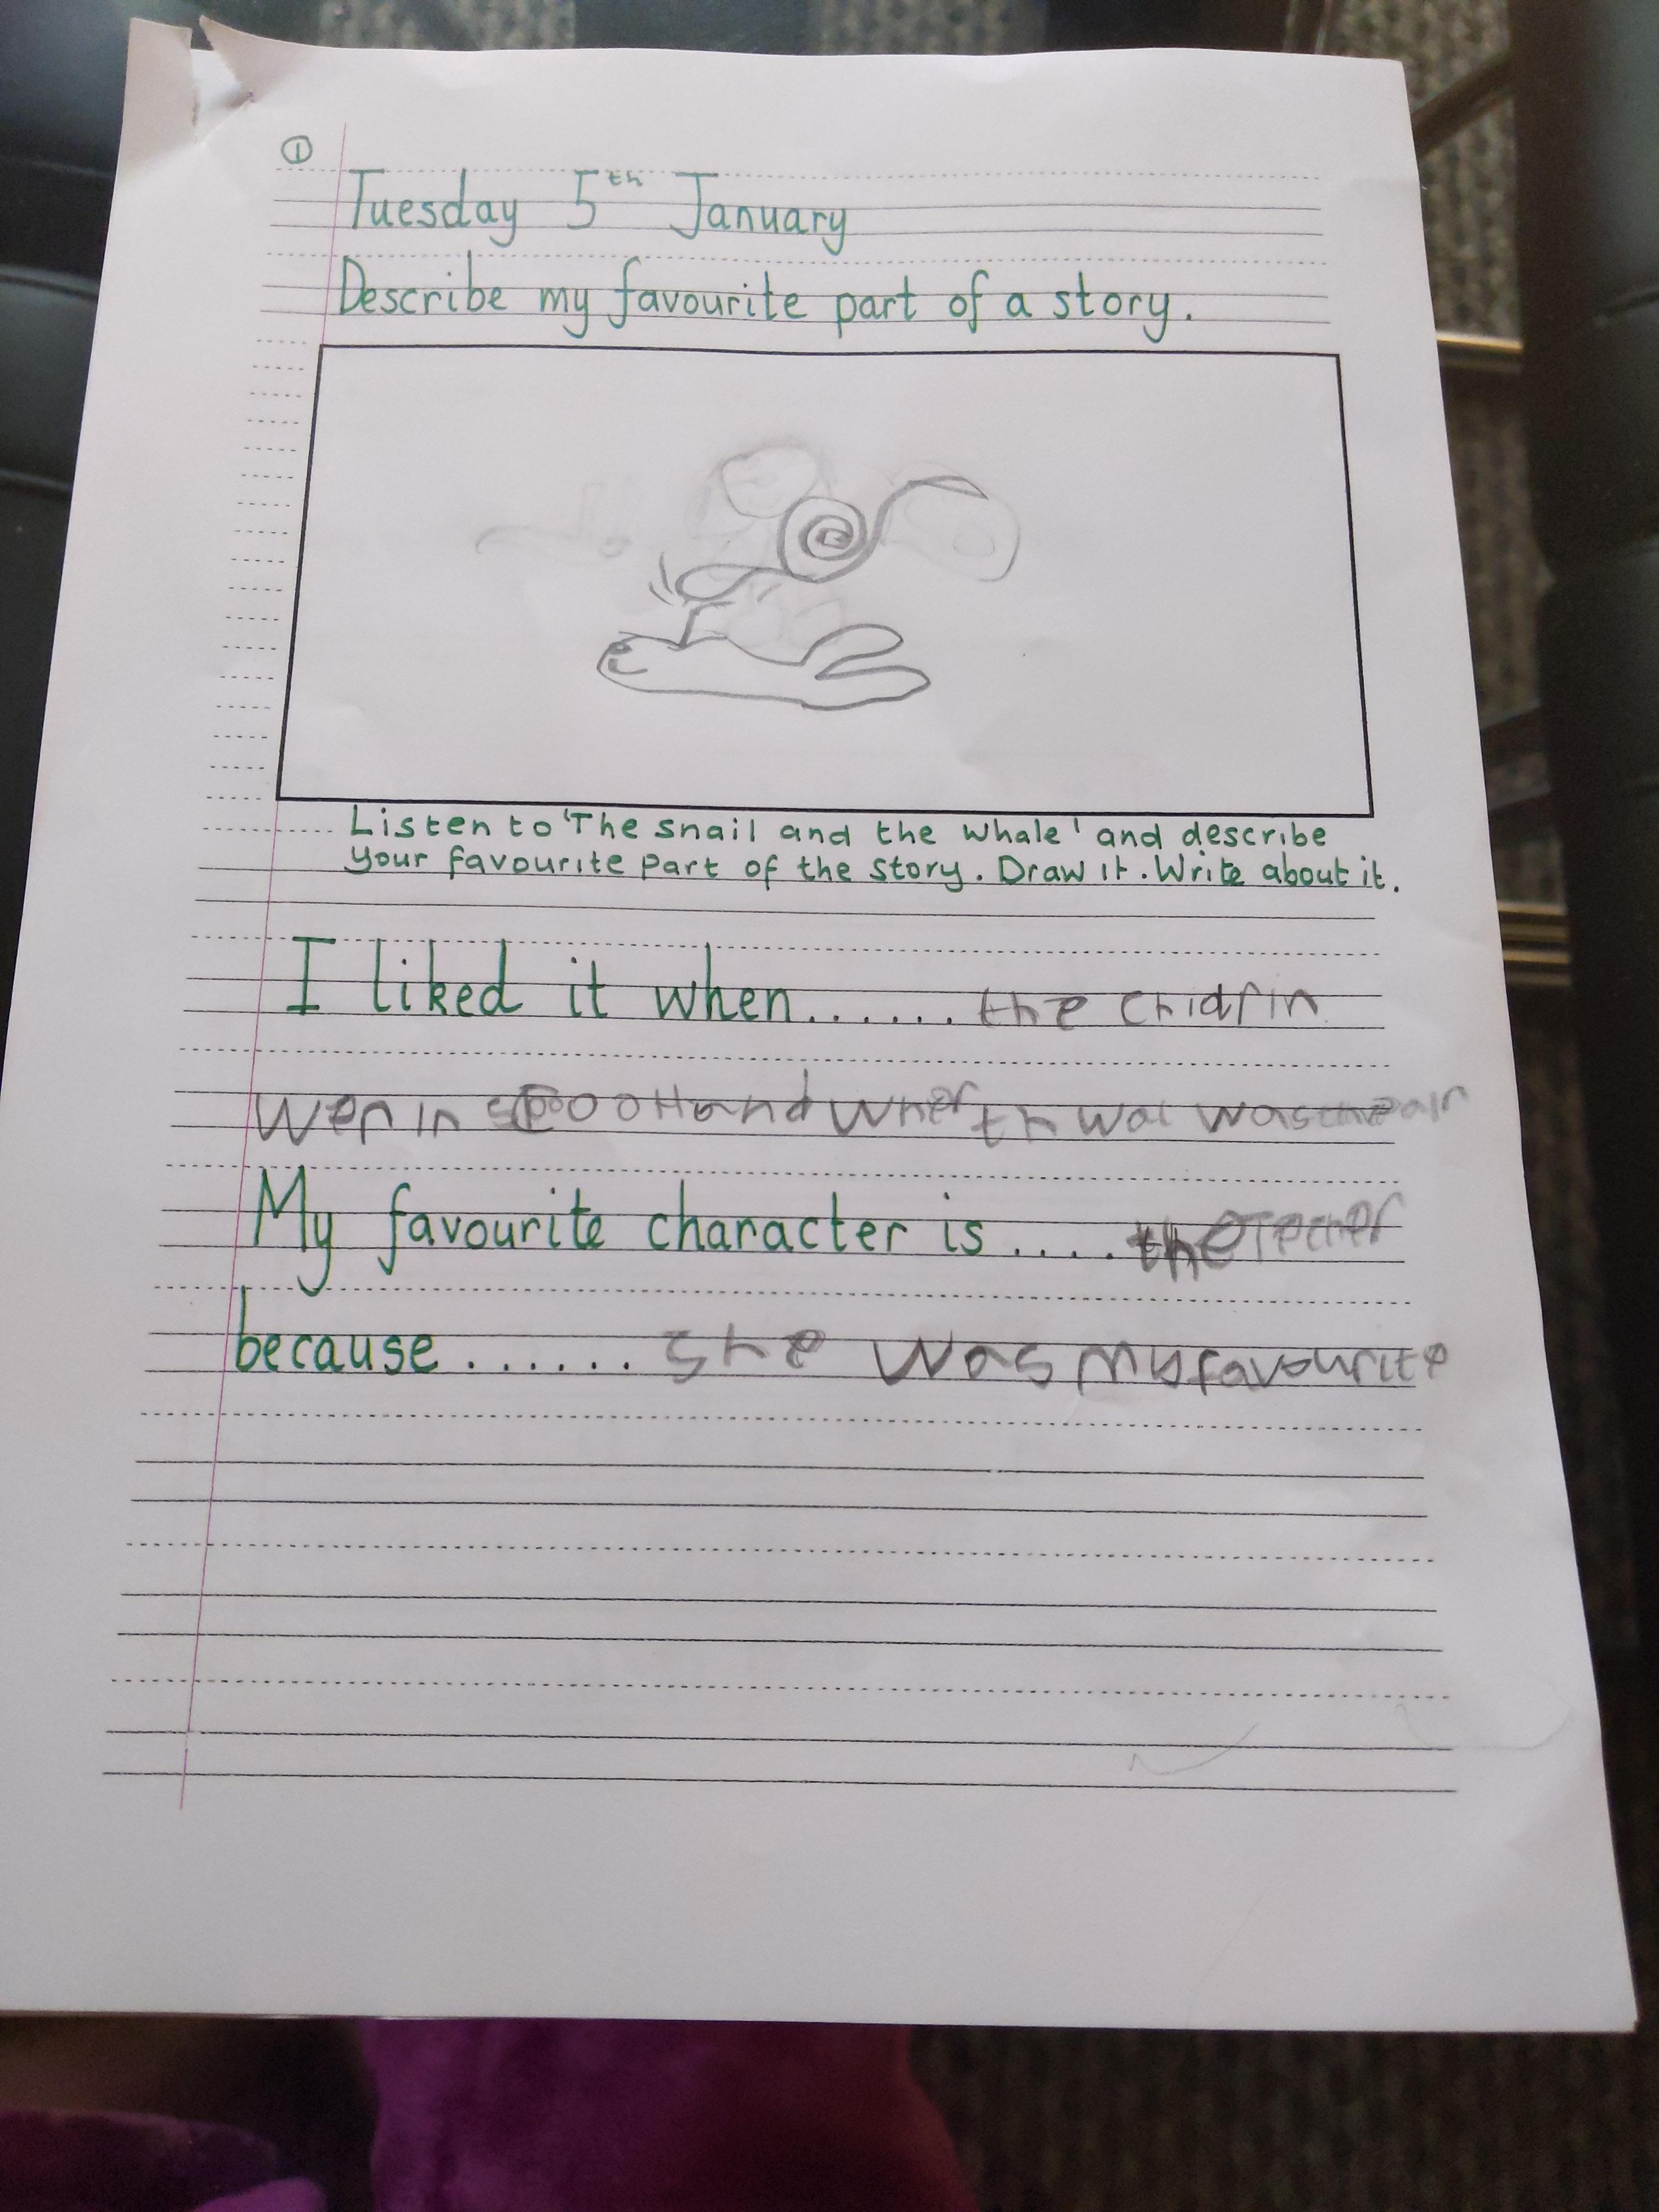 ①
Tuesday 5th January
Describe my favourite part of a story.
Listen to 'The snail and the whale' and describe
your favourite part of the story. Draw it. Write about it.
I liked it when....... the chidrin
wer in and wher th wal was
My favourite character is .... the Techer
because ....... she was my favourite